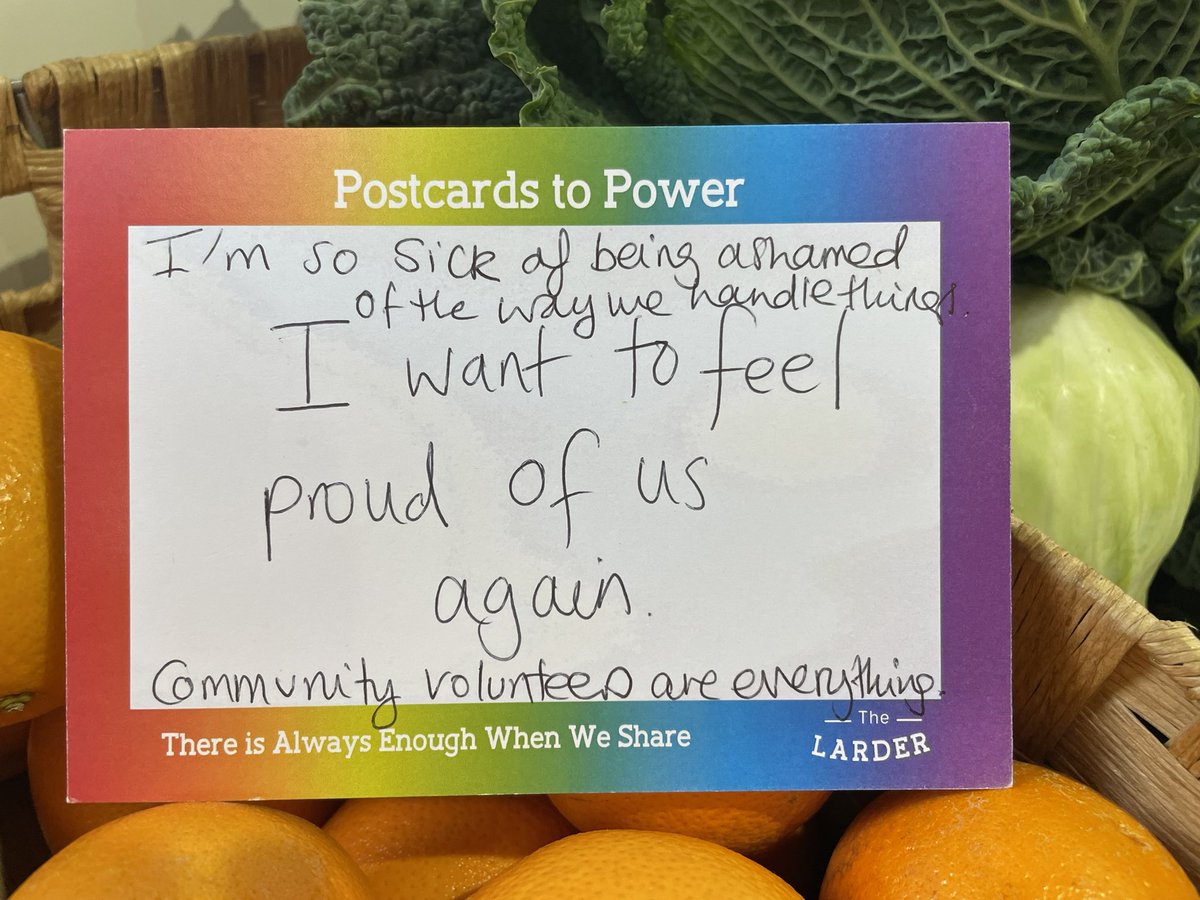 Postcards to Power
I'm so sick of being ashamed
of the way we handle things.
I want to feel
proud of us
again.
Community volunteers are everything.
There is Always Enough When We Share
The
LARDER